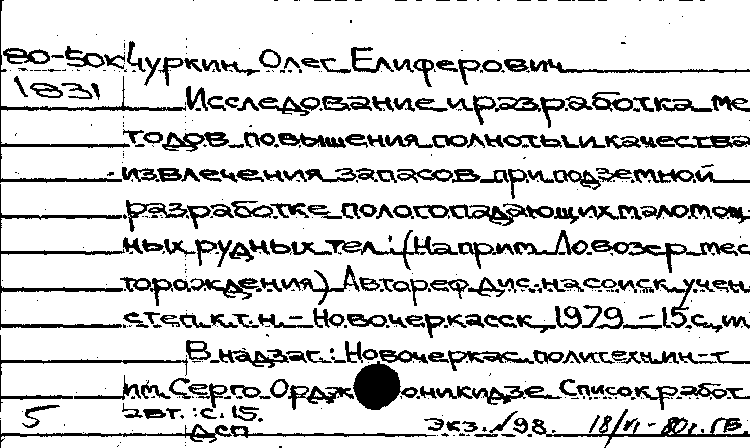 80-50к Чуркин, Олег Елиферович
1831
Исследование и разработка ме
тодов повышения полноты и качества
извлечения запасов при подземной
разработке пологопадающих маломощ
ных рудных тел: (На прим. Ловозер. мес
торождения) Автореф. дис. на соиск. учен.
степ. к.т.н. - Новочеркасск, 1979. - 15 с., т
В надзаг.: Новочеркас. политехн. ин-т
им. Серго Орджоникидзе. Список работ
авт.: с. 15.
5 ДСП экз. №98. 18/VI - 80г. ГВ.